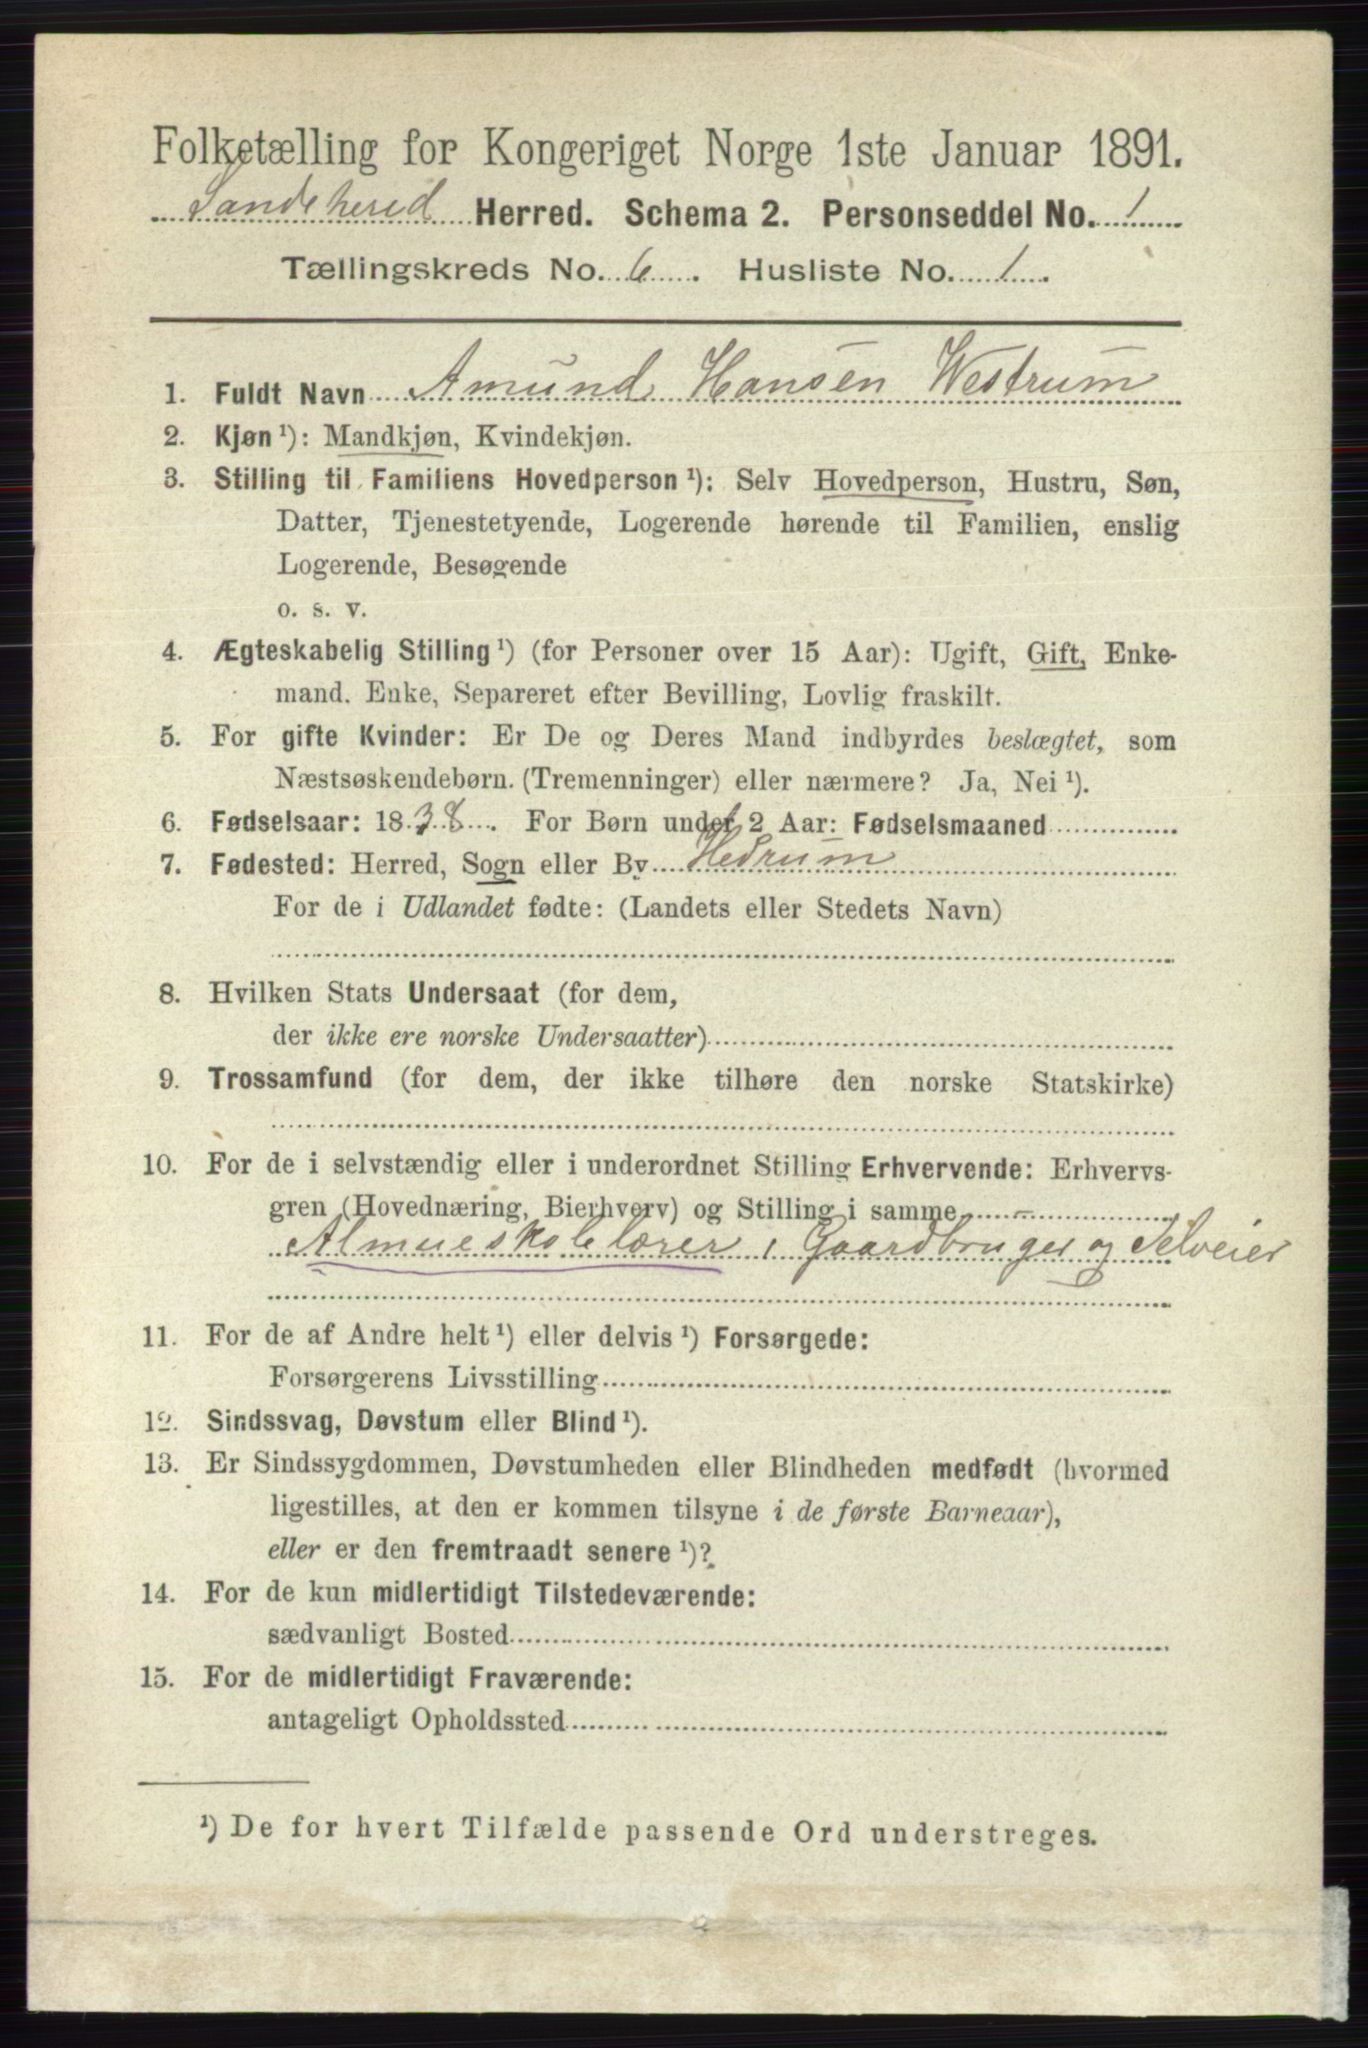 Folketælling for Kongeriget Norge 1ste Januar 1891.
Sandeherred Herred. Schema 2. Personseddel No. 1
Tællingskreds No. 6. Husliste No. 1.
1. Fuldt Navn Amund Hansen Westrum
2. Kjøn ¹): Mandkjøn, Kvindekjøn.
3. Stilling til Familiens Hovedperson ¹): Selv Hovedperson, Hustru, Søn,
Datter, Tjenestetyende, Logerende hørende til Familien, enslig
Logerende, Besøgende
o. s. v.
4. Ægteskabelig Stilling ¹) (for Personer over 15 Aar): Ugift, Gift, Enke-
mand. Enke, Separeret efter Bevilling, Lovlig fraskilt.
5. For gifte Kvinder: Er De og Deres Mand indbyrdes beslægtet, som
Næstsøskendebørn. (Tremenninger) eller nærmere? Ja, Nei ¹).
6. Fødselsaar: 1838. For Børn under 2 Aar: Fødselsmaaned
7. Fødested: Herred, Sogn eller By Hedrum
For de i Udlandet fødte: (Landets eller Stedets Navn)
8. Hvilken Stats Undersaat (for dem,
der ikke ere norske Undersaatter)
9. Trossamfund (for dem, der ikke tilhøre den norske Statskirke)
10. For de i selvstændig eller i underordnet Stilling Erhvervende: Erhvervs-
gren (Hovednæring, Bierhverv) og Stilling i samme
Almueskolelærer, Gaardbruger og Selveier
11. For de af Andre helt ¹) eller delvis ¹) Forsørgede:
Forsørgerens Livsstilling
12. Sindssvag, Døvstum eller Blind ¹).
13. Er Sindssygdommen, Døvstumheden eller Blindheden medfødt (hvormed
ligestilles, at den er kommen tilsyne i de første Barneaar),
eller er den fremtraadt senere ¹)?
14. For de kun midlertidigt Tilstedeværende:
sædvanligt Bosted
15. For de midlertidigt Fraværende:
antageligt Opholdssted
¹) De for hvert Tilfælde passende Ord understreges.